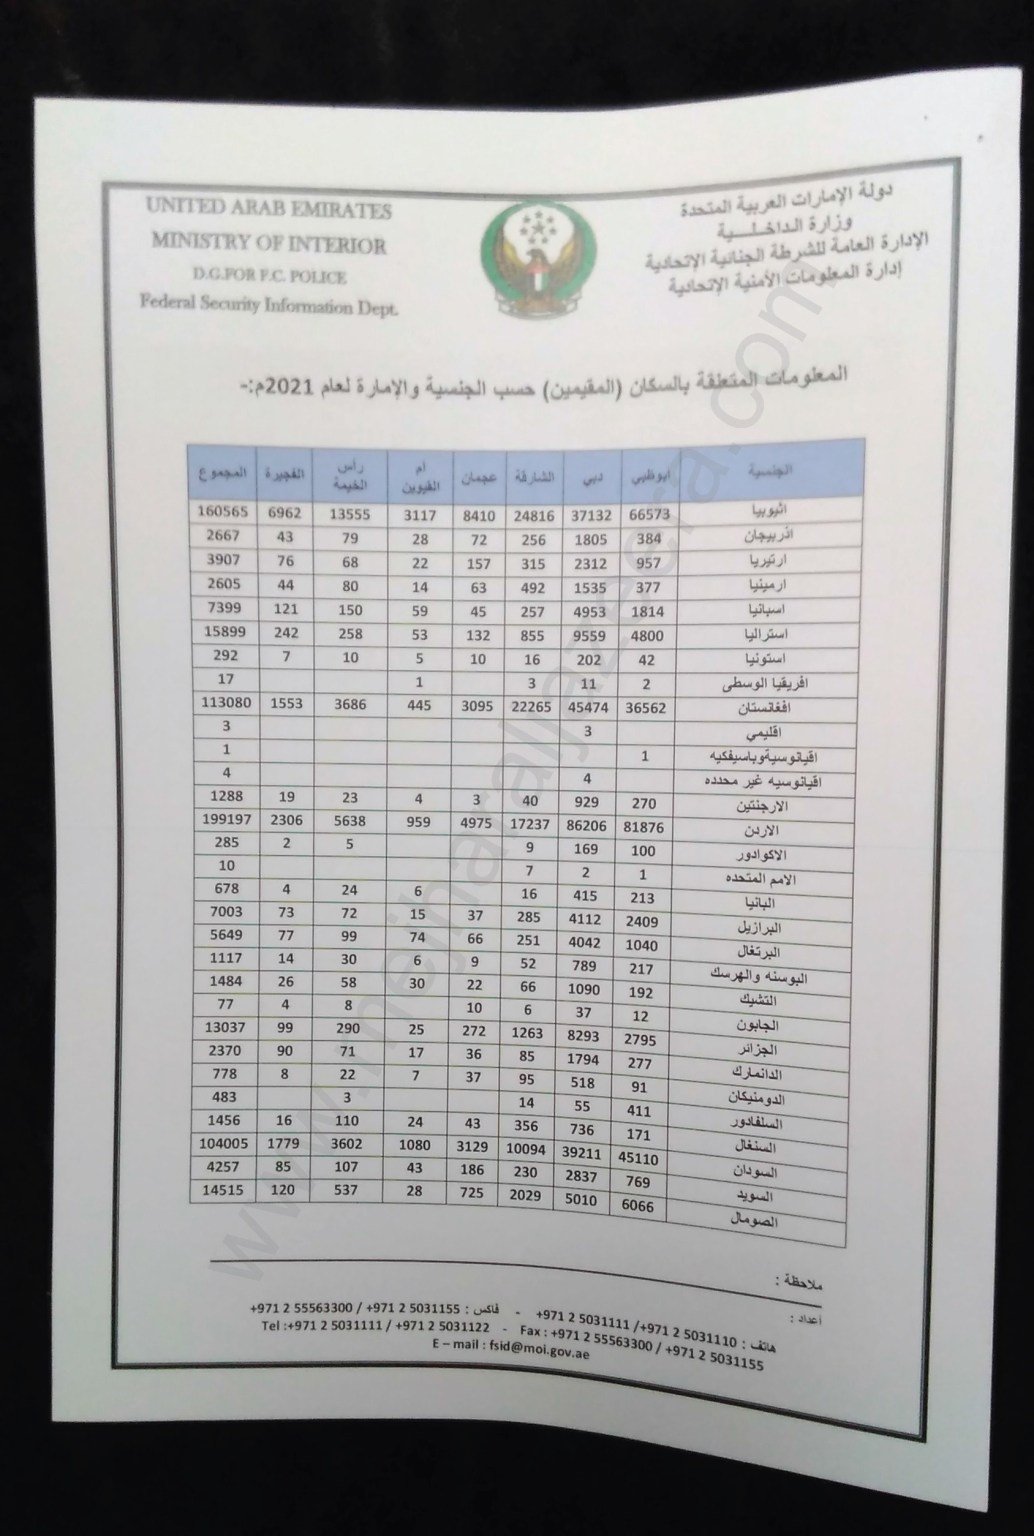 UNITED ARAB EMIRATES
MINISTRY OF INTERIOR
D.G.FOR F.C. POLICE
Federal Security Information Dept.
دولة الإمارات العربية المتحدة
وزارة الداخلـــية
الإدارة العامة للشرطة الجنائية الإتحادية
إدارة المعلومات الأمنية الإتحادية
المعلومات المتعلقة بالسكان (المقيمين) حسب الجنسية والإمارة لعام 2021م:-
الجنسية ابوظبي دبي الشارقة عجمان ام القيوين رأس الخيمة الفجيرة المجموع
اثيوبيا 66573 37132 24816 8410 3117 13555 6962 160565
اذربيجان 384 1805 256 72 28 79 43 2667
ارتيريا 957 2312 315 157 22 68 76 3907
ارمينيا 377 1535 492 63 14 80 44 2605
اسبانيا 1814 4953 257 45 59 150 121 7399
استراليا 4800 9559 855 132 53 258 242 15899
استونيا 42 202 16 10 5 10 7 292
افريقيا الوسطى 2 11 3 1 17
افغانستان 36562 45474 22265 3095 445 3686 1553 113080
اقليمي 3 3
اقيانوسيةوباسيفكيه 1 1
اقيانوسيه غير محدده 4 4
الارجنتين 270 929 40 3 4 23 19 1288
الاردن 81876 86206 17237 4975 959 5638 2306 199197
الاكوادور 100 169 9 5 2 285
الامم المتحده 1 2 7 10
البانيا 213 415 16 6 24 4 678
البرازيل 2409 4112 285 37 15 72 73 7003
البرتغال 1040 4042 251 66 74 99 77 5649
البوسنه والهرسك 217 789 52 9 6 30 14 1117
التشيك 192 1090 66 22 30 58 26 1484
الجابون 12 37 6 10 8 4 77
الجزائر 2795 8293 1263 272 25 290 99 13037
الدانمارك 277 1794 85 36 17 71 90 2370
الدومنيكان 91 518 95 37 7 22 8 778
السلفادور 411 55 14 3 483
السنغال 171 736 356 43 24 110 16 1456
السودان 45110 39211 10094 3129 1080 3602 1779 104005
السويد 769 2837 230 186 43 107 85 4257
الصومال 6066 5010 2029 725 28 537 120 14515
ملاحظة :
أعداد :
هاتف : 5031110 2 971+ /5031111 2 971+ - فاكس : 5031155 2 971+ / 55563300 2 971+
Tel :+971 2 5031111 / +971 2 5031122 - Fax : +971 2 55563300 / +971 2 5031155
E – mail : fsid@moi.gov.ae
www.mejharaljazeera.com